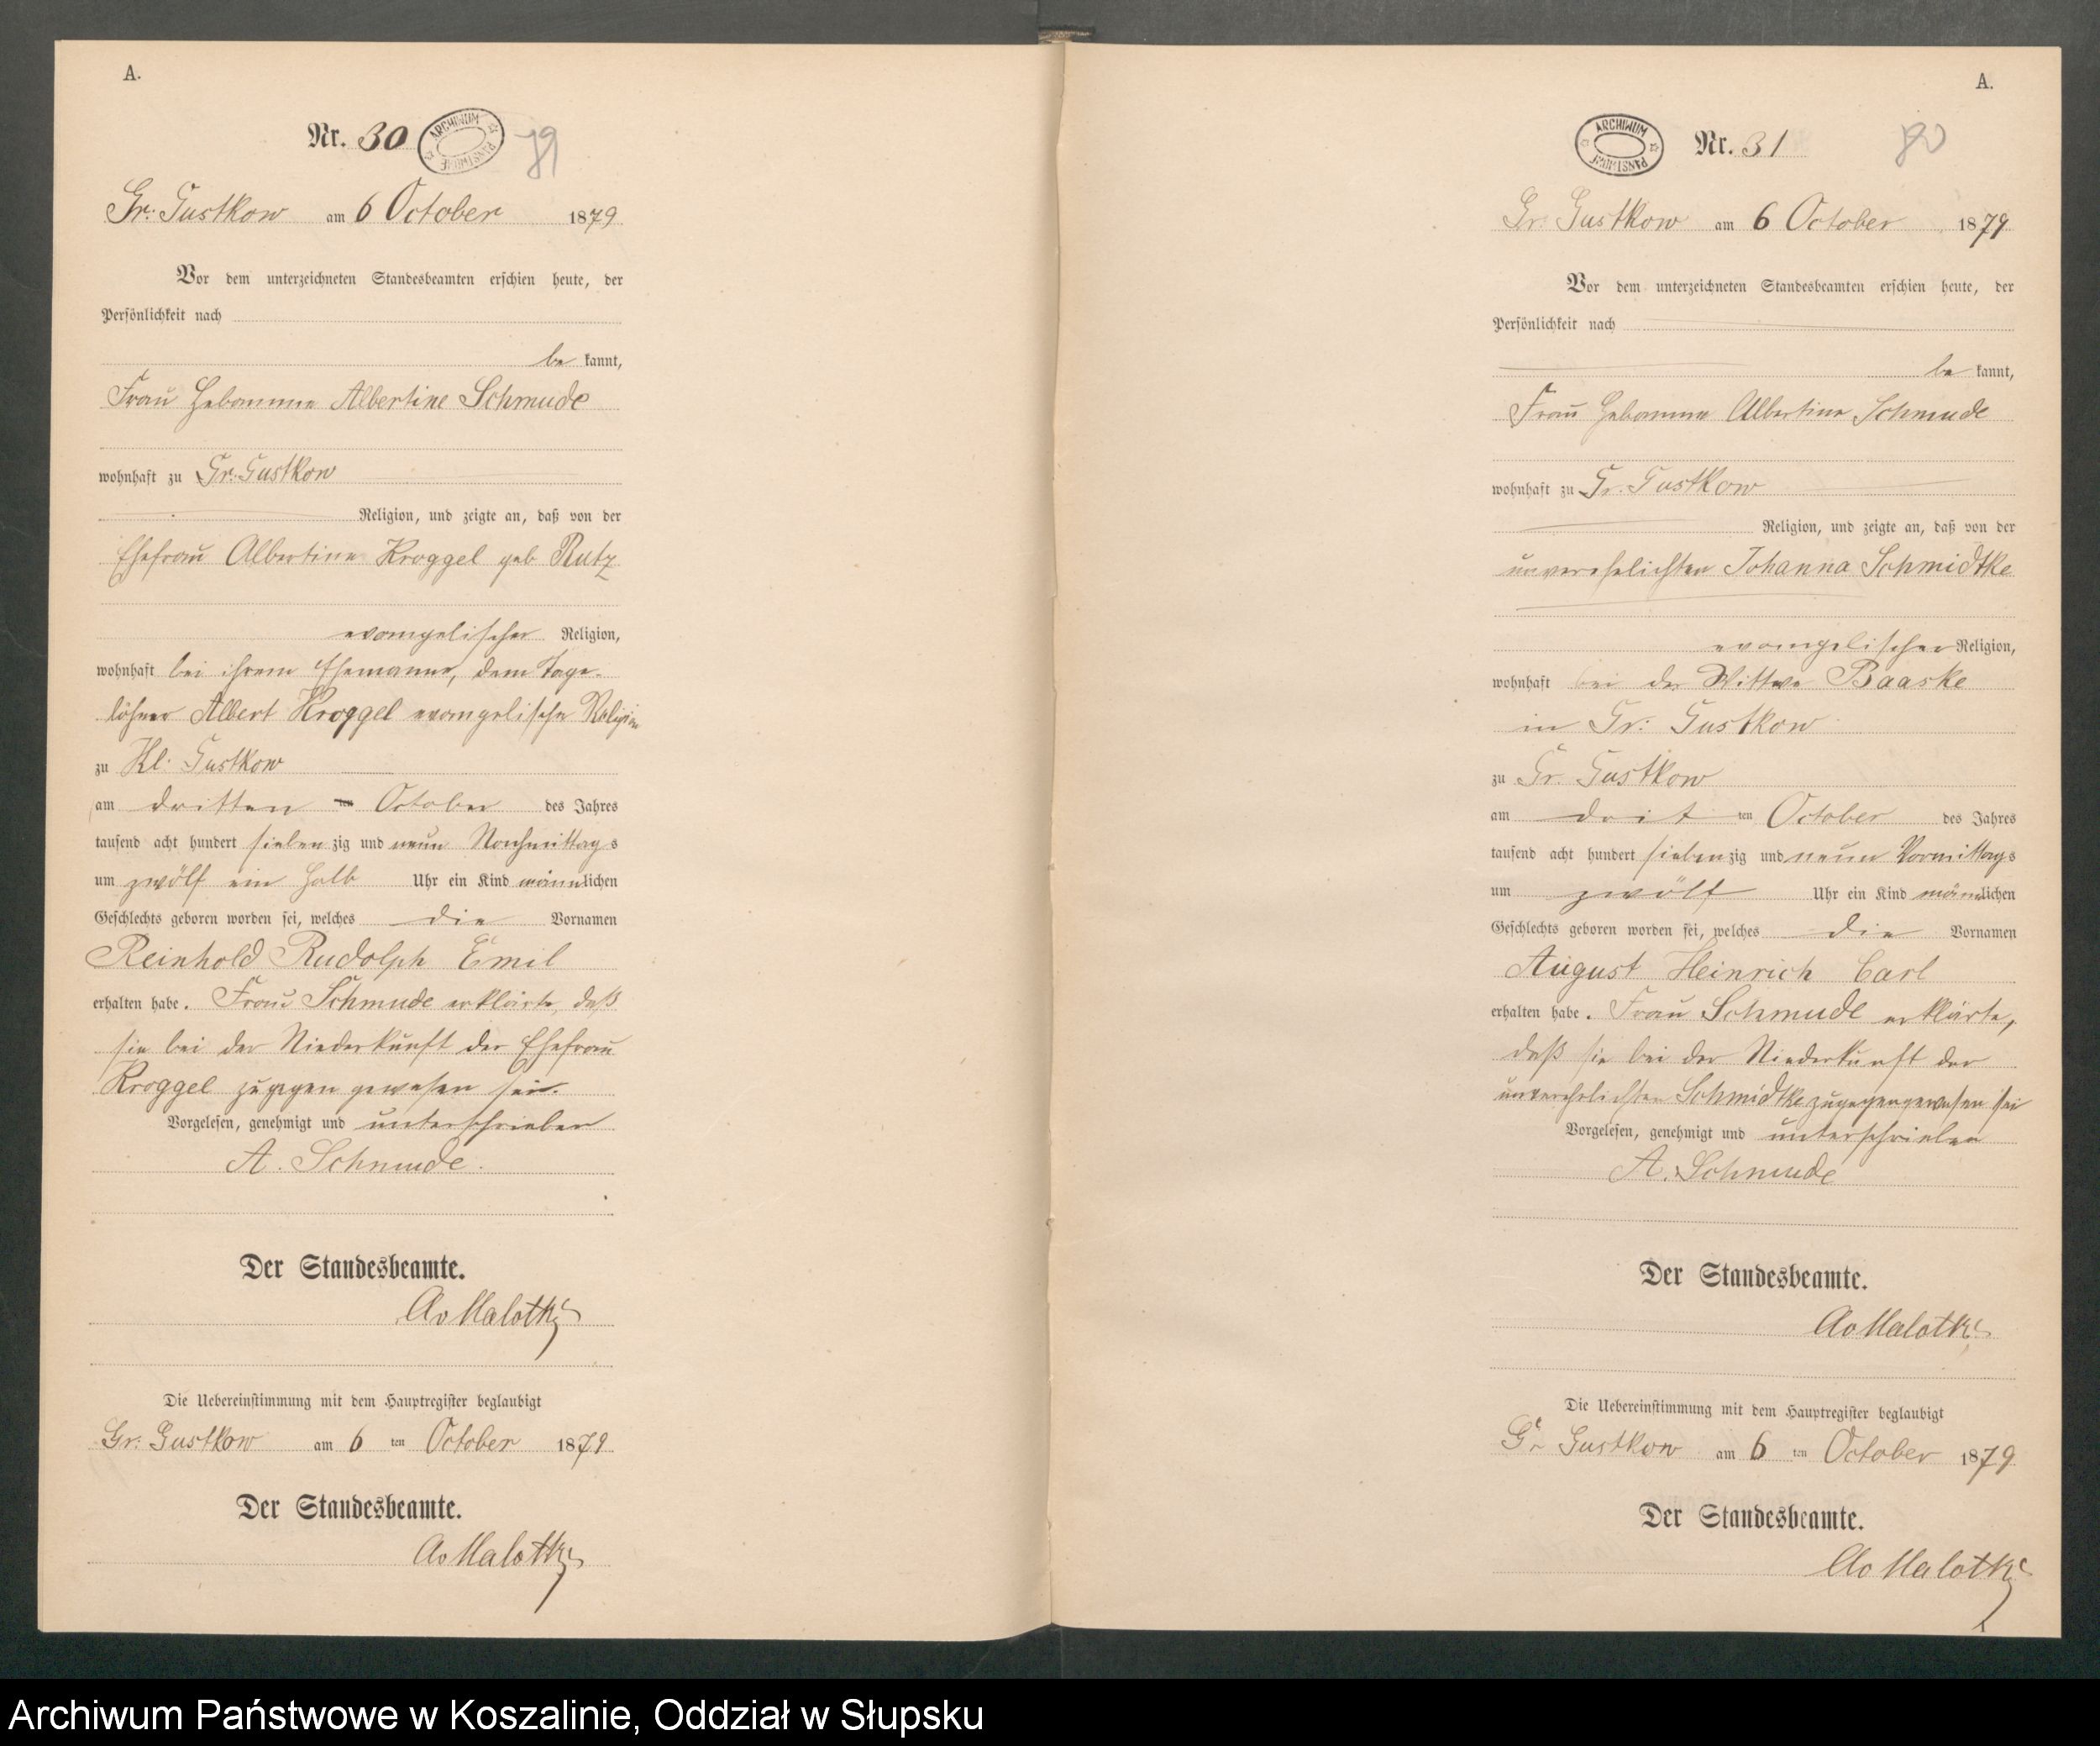 A.
Nr. 30
ARCHIWUM PAŃSTWOWE
79
Gr: Gustkow am 6 October 1879
Vor dem unterzeichneten Standesbeamten erschien heute, der
Persönlichkeit nach
be kannt,
Frau Hebamme Albertine Schmude
wohnhaft zu Gr: Gustkow
Religion, und zeigte an, daß von der
Ehefrau Albertine Kroggel geb Rutz
evangelischer Religion,
wohnhaft bei ihrem Ehemanne, dem Tage-
löhner Albert Kroggel evangelischer Religion
zu Kl: Gustkow
am dritten ten October des Jahres
tausend acht hundert sieben zig und neun Nachmittag s
um zwölf ein halb Uhr ein Kind männlichen
Geschlechts geboren worden sei, welches die Vornamen
Reinhold Rudolph Emil
erhalten habe. Frau Schmude erklärte, daß
sie bei der Niederkunft der Ehefrau
Kroggel zugegen gewesen sei.
Vorgelesen, genehmigt und unterschrieben
A. Schmude.
Der Standesbeamte.
Av Malotki
Die Uebereinstimmung mit dem Hauptregister beglaubigt
Gr: Gustkow am 6 ten October 1879
Der Standesbeamte.
Av Malotki
A.
ARCHIWUM PAŃSTWOWE
Nr. 31
80
Gr: Gustkow am 6 October 1879
Vor dem unterzeichneten Standesbeamten erschien heute, der
Persönlichkeit nach
be kannt,
Frau Hebamme Albertine Schmude
wohnhaft zu Gr. Gustkow
Religion, und zeigte an, daß von der
unverehelichten Johanna Schmidtke
evangelischer Religion,
wohnhaft bei der Wittwe Baaske
in Gr: Gustkow
zu Gr. Gustkow
am drit ten October des Jahres
tausend acht hundert sieben zig und neun Vormittags
um zwölf Uhr ein Kind männlichen
Geschlechts geboren worden sei, welches die Vornamen
August Heinrich Carl
erhalten habe. Frau Schmude erklärte,
daß sie bei der Niederkunft der
unverehelichten Schmidtke zugegen gewesen sei
Vorgelesen, genehmigt und unterschrieben
A. Schmude
Der Standesbeamte.
Av Malotki
Die Uebereinstimmung mit dem Hauptregister beglaubigt
Gr Gustkow am 6 ten October 1879
Der Standesbeamte.
Av Malotki
Archiwum Państwowe w Koszalinie, Oddział w Słupsku